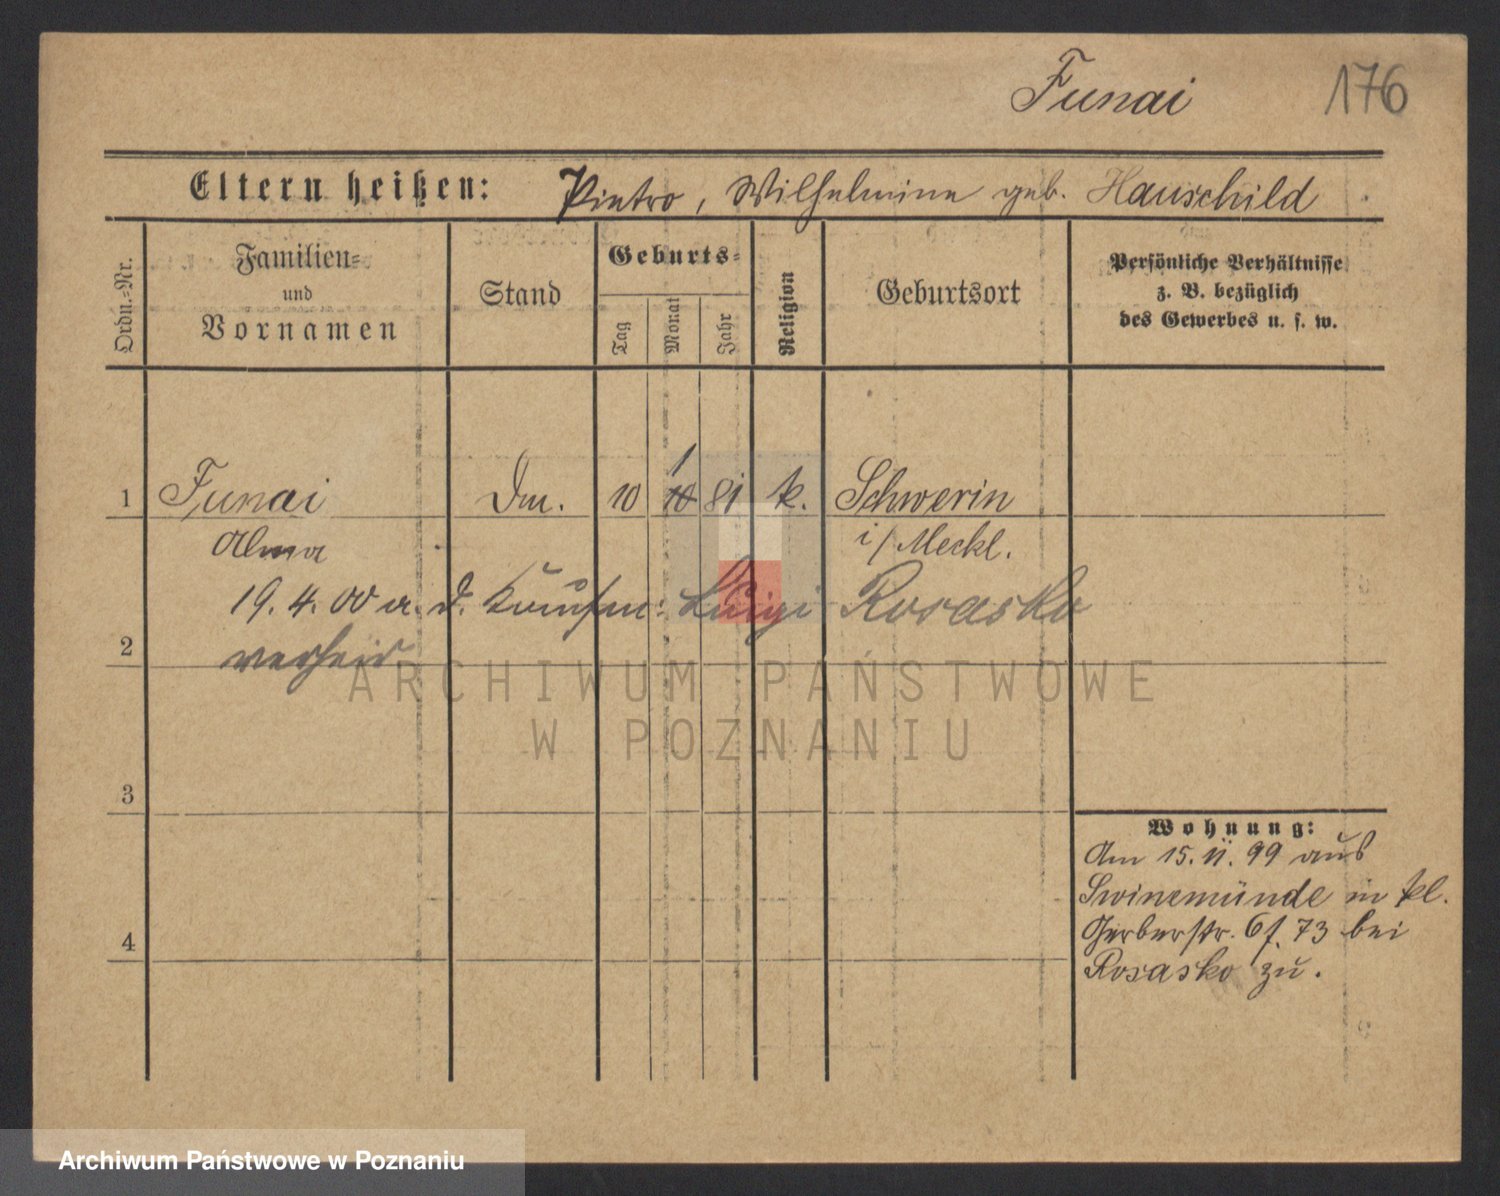 Funai 176
Eltern heißen: Pietro, Wilhelmine geb. Hauschild
Ordn.-Nr.
Familien-
und
Vornamen
Stand
Geburts-
Tag
Monat
Jahr
Religion
Geburtsort
Persönliche Verhältnisse
z. B. bezüglich
des Gewerbes u. s. w.
1 Funai 10 1 10 81 k. Schwerin
Alma i/Meckl.
19.4.00 a. d. Kaufm: Luigi Rosasko
2 verheir
3
4
Wohnung:
Am 15.11.99 aus
Swinemünde in kl.
Gerberstr. 6 f. 73 bei
Rosasko zu.
ARCHIWUM PAŃSTWOWE
W POZNANIU
Archiwum Państwowe w Poznaniu